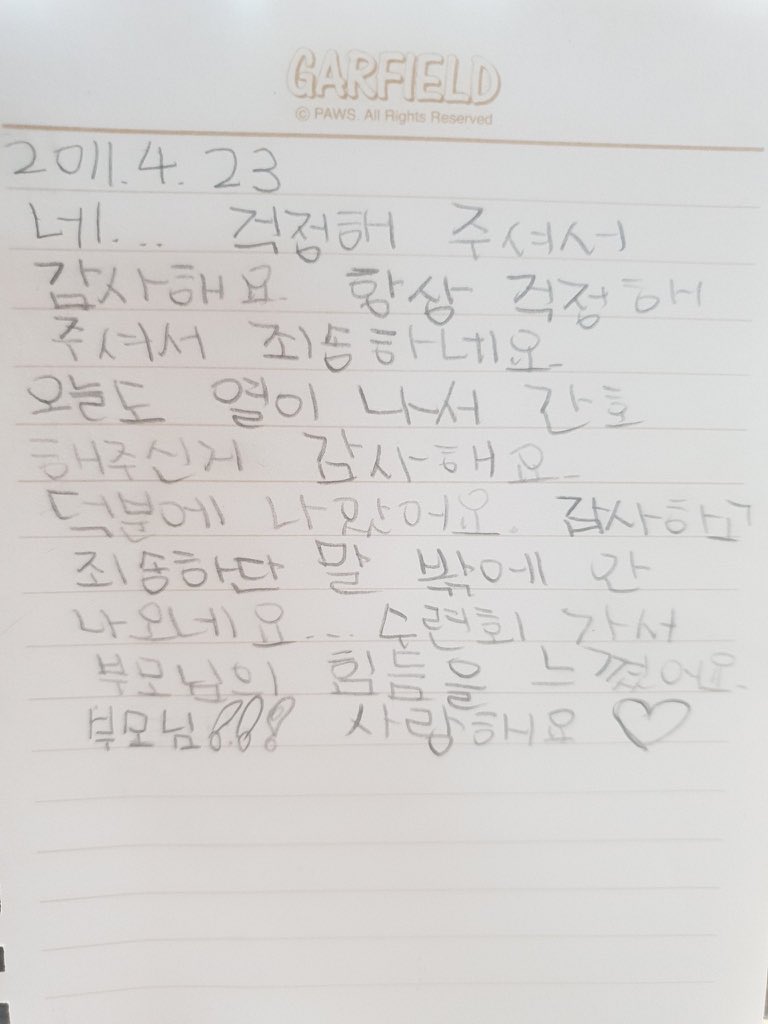 GARFIELD
© PAWS. All Rights Reserved
2011.4.23
네... 걱정해 주셔서
감사해요. 항상 걱정해
주셔서 죄송하네요.
오늘도 열이 나서 간호
해주신거 감사해요.
덕분에 나았어요. 감사하고
죄송하단 말 밖에 안
나오네요... 수련회 가서
부모님의 힘듬을 느꼈어요.
부모님!!! 사랑해요 ♡